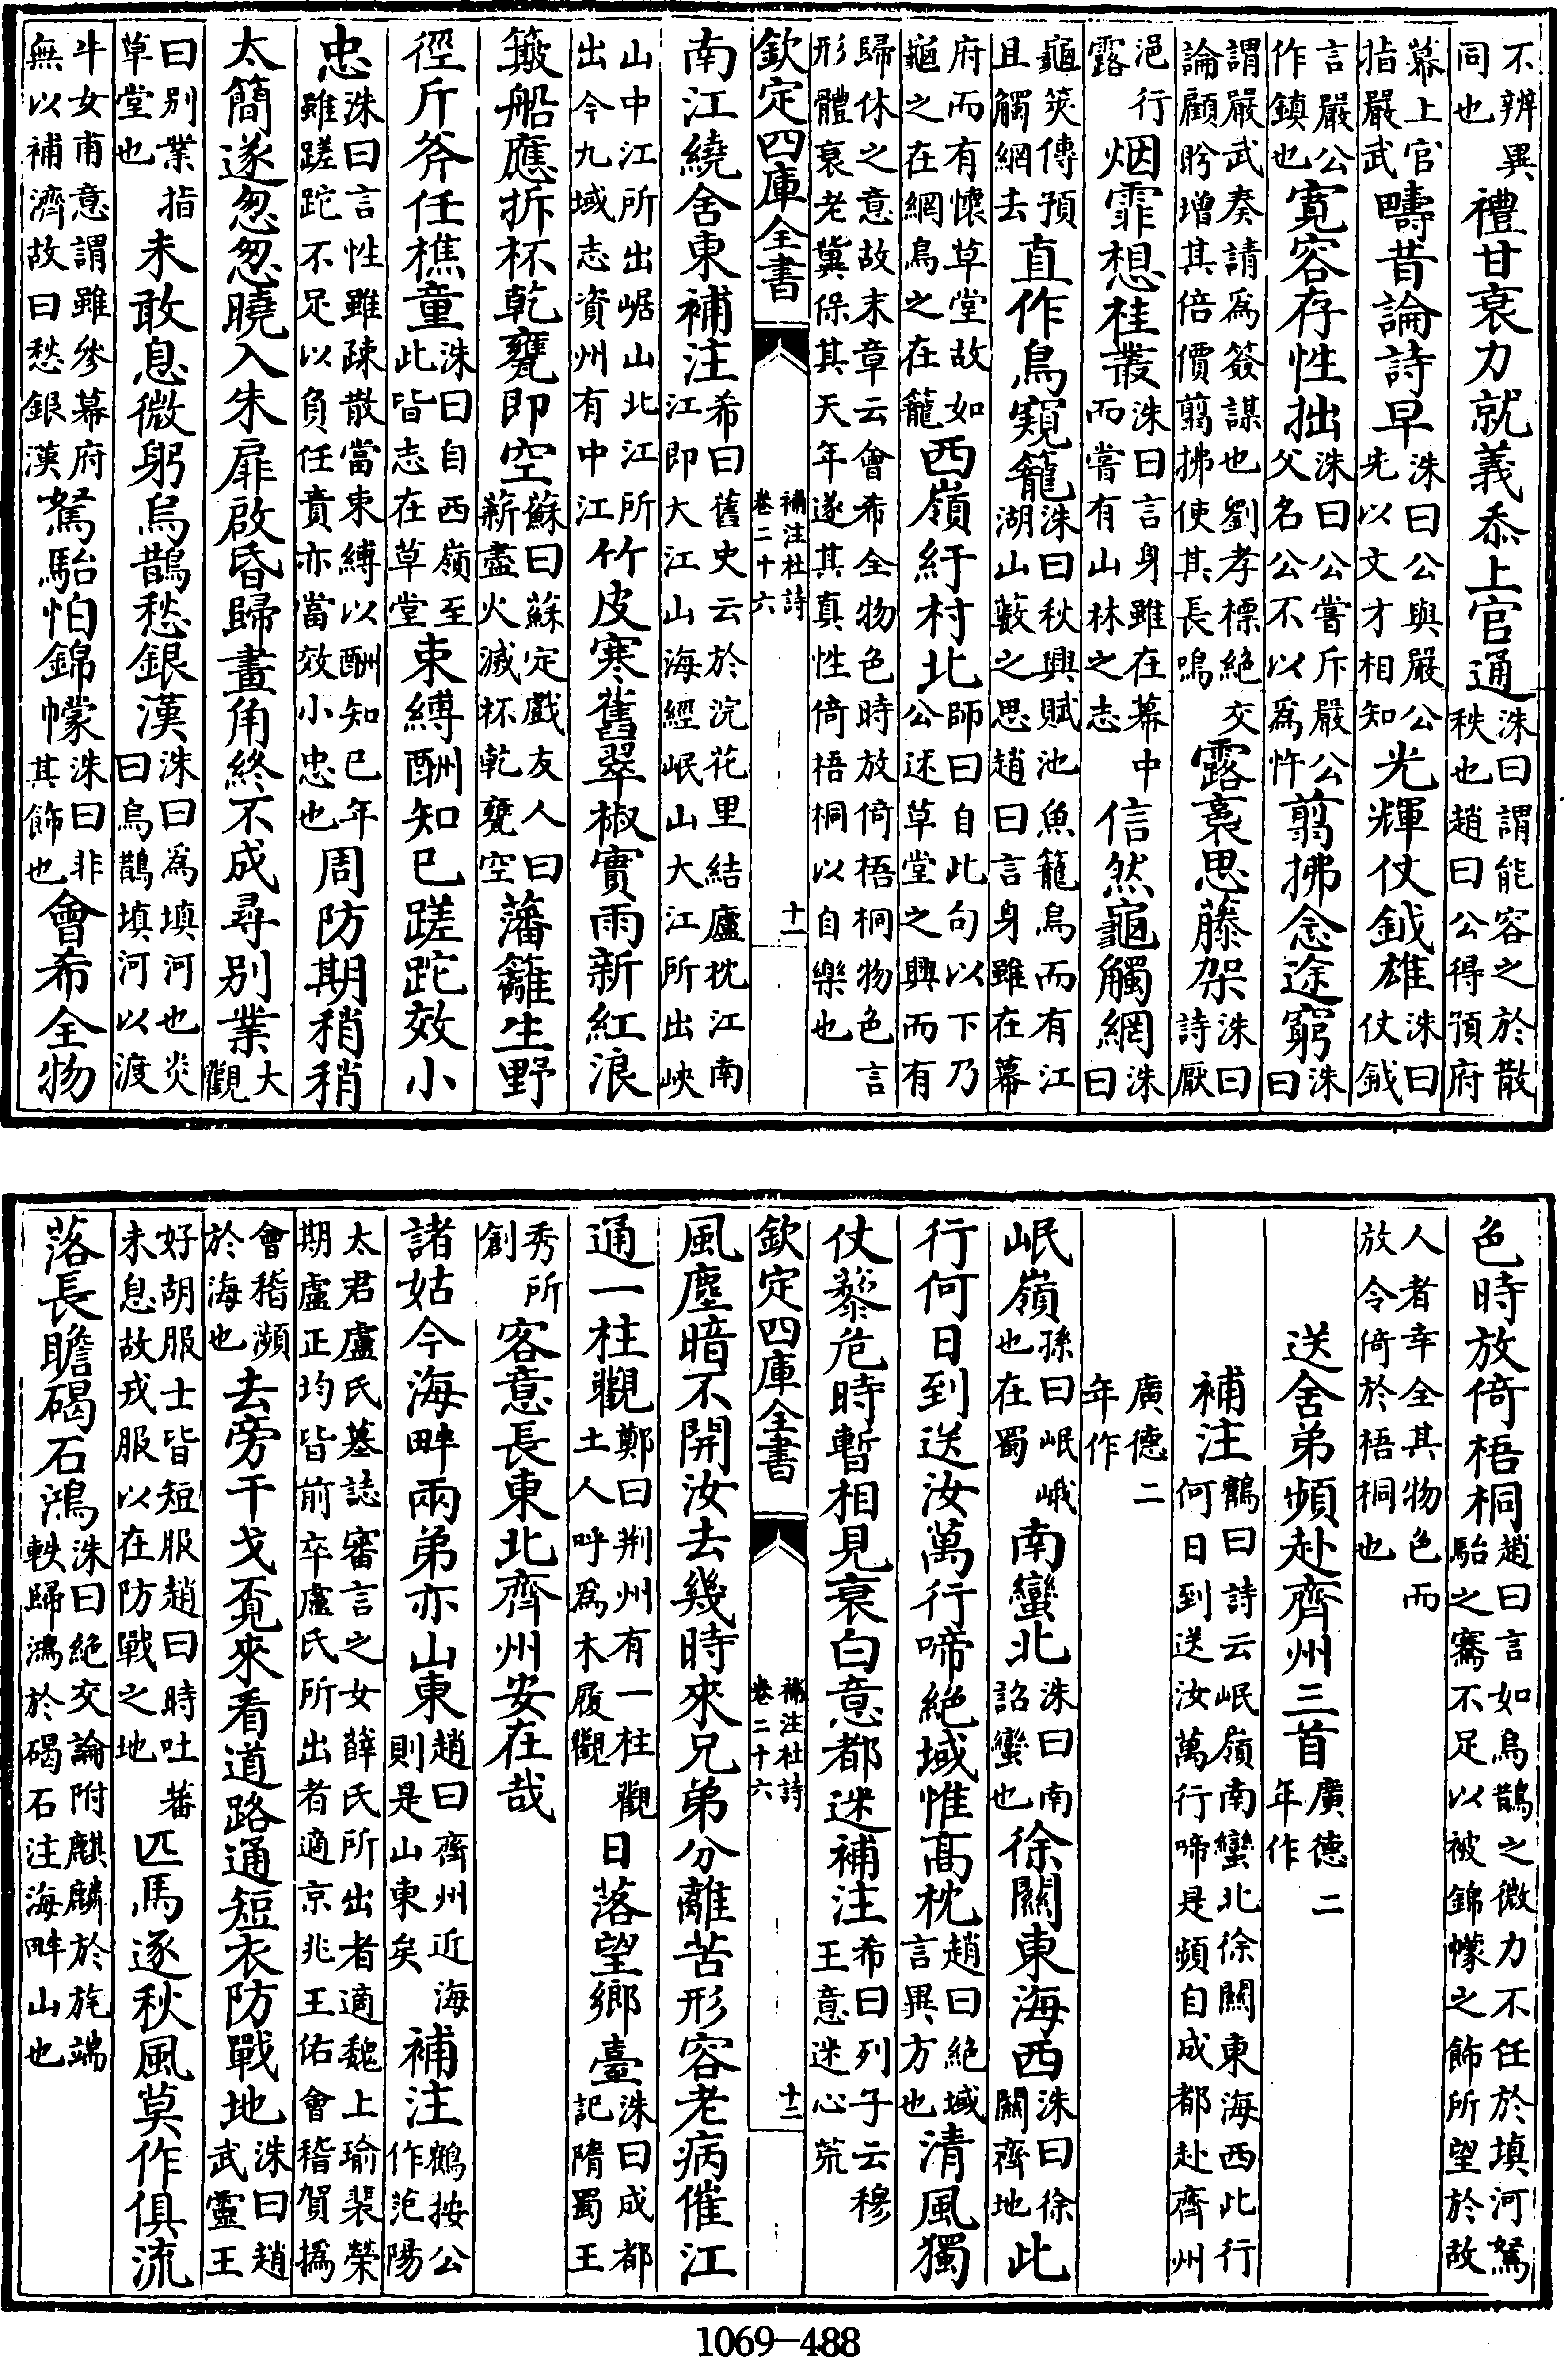 不辨異同也禮甘衰力就義忝上官通洙曰謂能容之於散秩也趙曰公得預府
幕上官指嚴武疇昔論詩早洙曰公與嚴公先以文才相知光輝仗鉞雄洙曰仗鉞
言嚴公作鎮也寛容存性拙洙曰公嘗斥嚴公父名公不以爲忤翦拂念途窮洙曰
謂嚴武奏請爲簽謀也劉孝標絶交論顧盻增其倍價翦拂使其長鳴露裛思藤架洙曰詩厭
浥行露烟霏想桂叢洙曰言身雖在幕中而嘗有山林之志信然龜觸網洙曰
龜筴傳預且觸網去直作鳥窺籠洙曰秋興賦池魚籠鳥而有江湖山藪之思趙曰言身雖在幕
府而有懷草堂故如龜之在網鳥之在籠西嶺紆村北師曰自此句以下乃公述草堂之興而有
歸休之意故末章云會希全物色時放倚梧桐物色言形體衰老冀保其天年遂其真性倚梧桐以自樂也
欽定四庫全書 補注杜詩卷二十六 十一
南江繞舍東補注希曰舊史云於浣花里結廬枕江南江即大江山海經岷山大江所出峽
山中江所出崌山北江所出今九域志資州有中江竹皮寒舊翠椒實雨新紅浪
簸船應拆杯乾甕即空蘇曰蘇定戲友人曰薪盡火滅杯乾甕空藩籬生野
徑斤斧任樵童洙曰自西嶺至此皆志在草堂束縛酬知已蹉跎效小
忠洙曰言性雖疎散當束縛以酬知已年雖蹉跎不足以負任責亦當效小忠也周防期稍稍
太簡遂怱怱曉入朱扉啟昏歸畫角終不成尋别業大觀
曰别業指草堂也未敢息微躬烏鵲愁銀漢洙曰爲填河也炎曰烏鵲填河以渡
牛女甫意謂雖參幕府無以補濟故曰愁銀漢駑駘怕錦幪洙曰非其飾也會希全物
色時放倚梧桐趙曰言如烏鵲之微力不任於填河駑駘之騫不足以被錦幪之飾所望於故
人者幸全其物色而放令倚於梧桐也
送舍弟頻赴齊州三首廣德二年作
補注鶴曰詩云岷嶺南蠻北徐關東海西此行何日到送汝萬行啼是頻自成都赴齊州
廣德二年作
岷嶺孫曰岷峨也在蜀南蠻北洙曰南詔蠻也徐關東海西洙曰徐關齊地此
行何日到送汝萬行啼絶域惟高枕趙曰絶域言異方也清風獨
仗藜危時暫相見衰白意都迷補注希曰列子云穆王意迷心荒
欽定四庫全書 補注杜詩卷二十六 十二
風塵暗不開汝去幾時來兄弟分離苦形容老病催江
通一柱觀鄭曰荆州有一柱觀土人呼爲木履觀日落望鄉臺洙曰成都記隋蜀王
秀所創客意長東北齊州安在哉
諸姑今海畔兩弟亦山東趙曰齊州近海則是山東矣補注鶴按公作范陽
太君盧氏墓誌審言之女薛氏所出者適魏上瑜裴榮期盧正均皆前卒盧氏所出者適京兆王佑會稽賀撝
會稽瀕於海也去旁干戈覓來看道路通短衣防戰地洙曰趙武靈王
好胡服士皆短服趙曰時吐蕃未息故戎服以在防戰之地匹馬逐秋風莫作俱流
落長瞻碣石鴻洙曰絶交論附麒麟於旄端軼歸鴻於碣石注海畔山也
1069—488